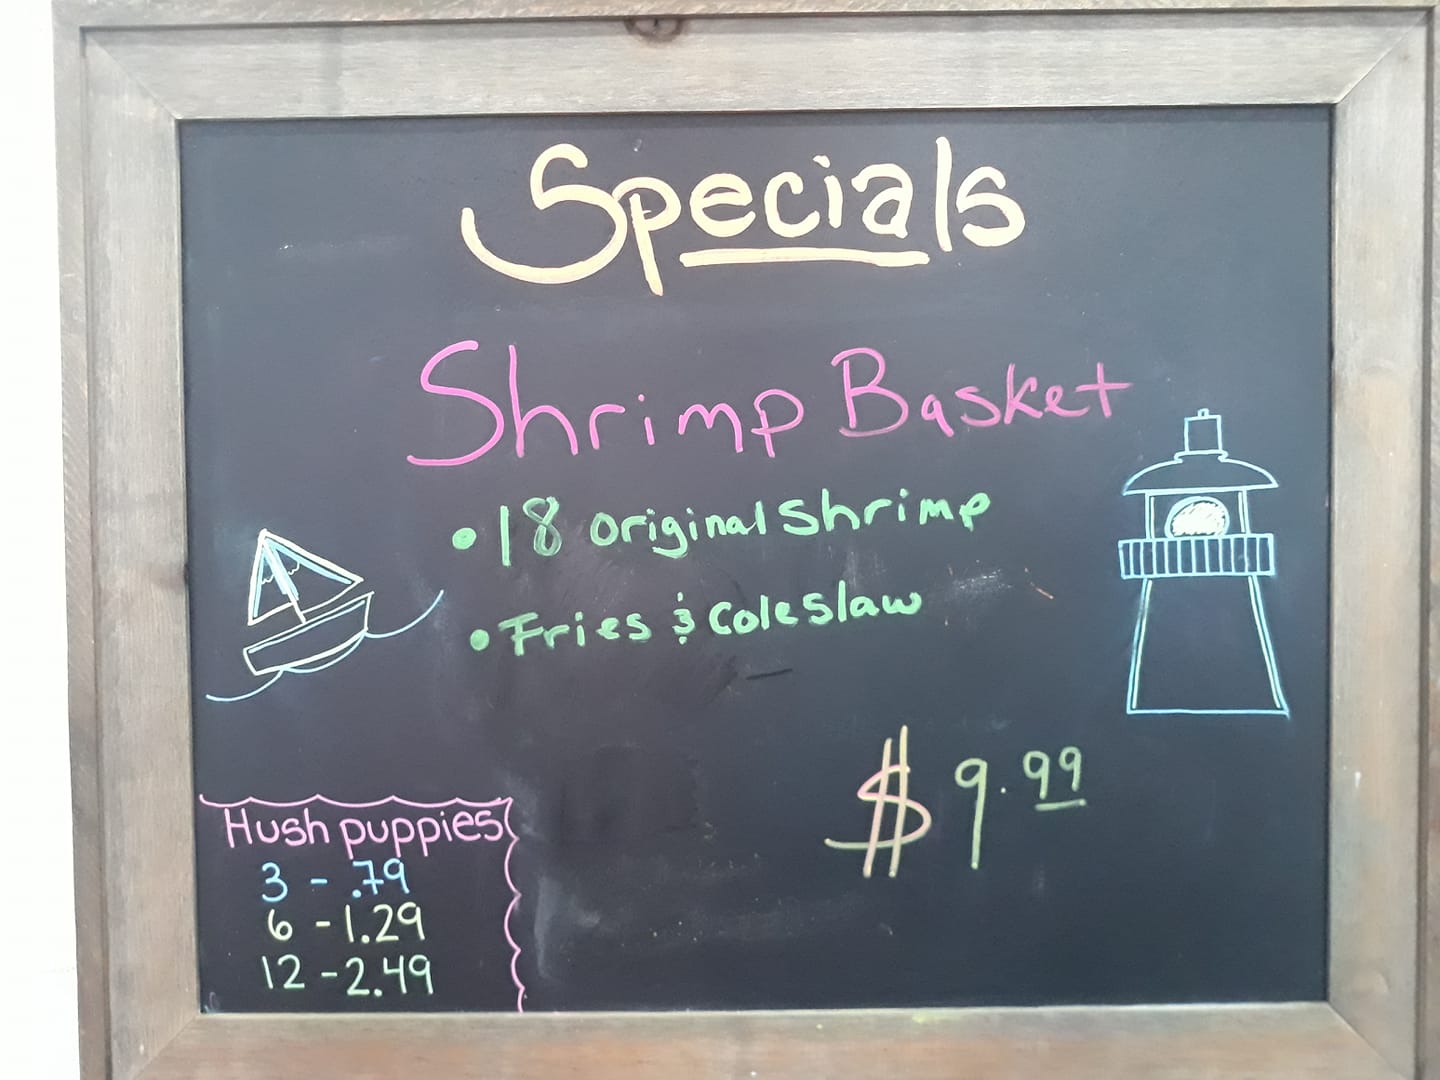 Specials
Shrimp Basket
• 18 original shrimp
• Fries & Coleslaw
$9.99
Hush puppies
3 - .79
6 - 1.29
12 - 2.49